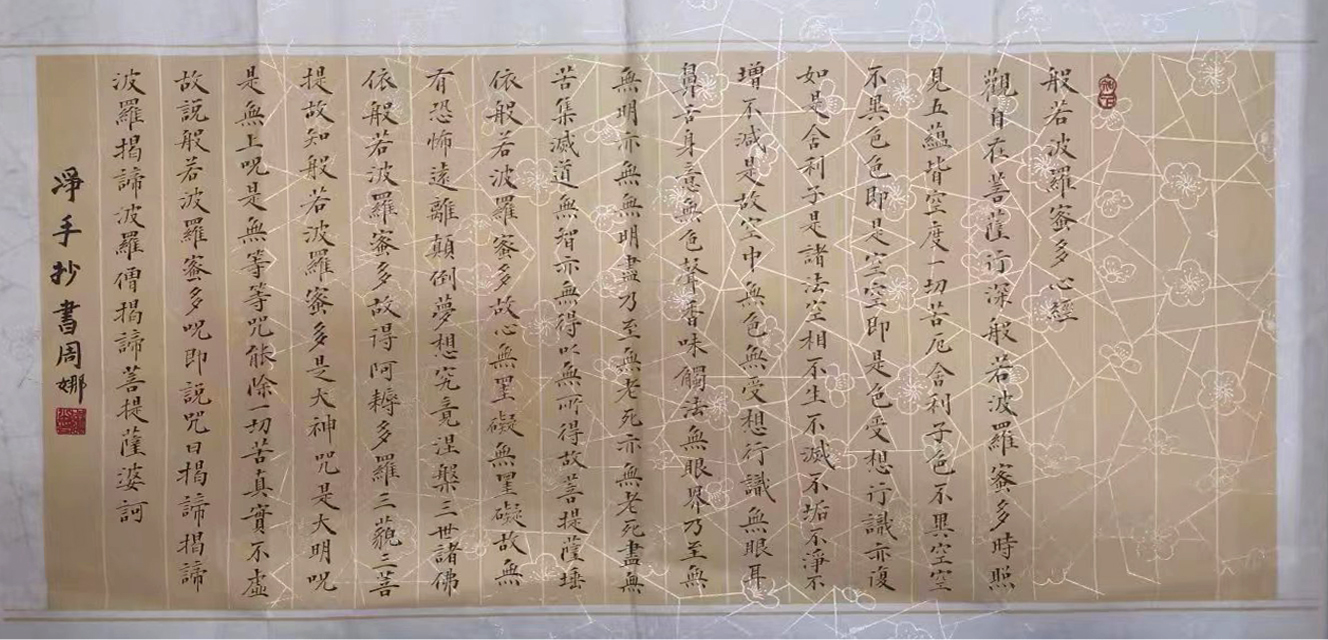 般若波羅蜜多心經
觀自在菩薩行深般若波羅蜜多時照
見五蘊皆空度一切苦厄舍利子色不異空空
不異色色即是空空即是色受想行識亦復
如是舍利子是諸法空相不生不滅不垢不淨不
增不減是故空中無色無受想行識無眼耳
鼻舌身意無色聲香味觸法無眼界乃至無
無明亦無無明盡乃至無老死亦無老死盡無
苦集滅道無智亦無得以無所得故菩提薩埵
依般若波羅蜜多故心無罣礙無罣礙故無
有恐怖遠離顛倒夢想究竟涅槃三世諸佛
依般若波羅蜜多故得阿耨多羅三藐三菩
提故知般若波羅蜜多是大神咒是大明咒
是無上咒是無等等咒能除一切苦真實不虛
故說般若波羅蜜多咒即說咒曰揭諦揭諦
波羅揭諦波羅僧揭諦菩提薩婆訶
淨手抄書周娜